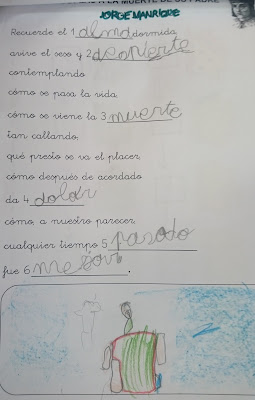 A LA MUERTE DE SU PADRE
JORGE MANRIQUE
Recuerde el 1 alma dormida,
avive el seso y 2 despierte
contemplando
cómo se pasa la vida,
cómo se viene la 3 muerte
tan callando,
qué presto se va el placer,
cómo después de acordado
da 4 dolor
cómo, a nuestro parecer,
cualquier tiempo 5 pasado
fue 6 mejor.